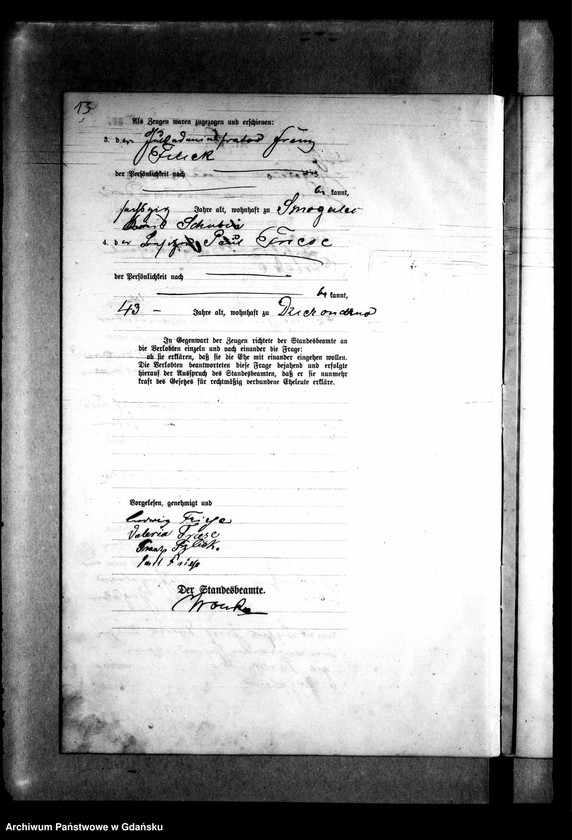 Als Zeugen waren zugezogen und erschienen:
3. der Franz
der Persönlichkeit nach
be kannt,
sechszig Jahre alt, wohnhaft zu
Kreis Schubin
4. der Paul Friese
der Persönlichkeit nach
be kannt,
43 - Jahre alt, wohnhaft zu
In Gegenwart der Zeugen richtete der Standesbeamte an
die Verlobten einzeln und nach einander die Frage:
ob sie erklären, daß sie die Ehe mit einander eingehen wollen.
Die Verlobten beantworteten diese Frage bejahend und erfolgte
hierauf der Ausspruch des Standesbeamten, daß er sie nunmehr
kraft des Gesetzes für rechtmäßig verbundene Eheleute erkläre.
Vorgelesen, genehmigt und
Ludwig Friese
Valeria Friese
Franz
Paul Friese
Der Standesbeamte.
Archiwum Państwowe w Gdańsku